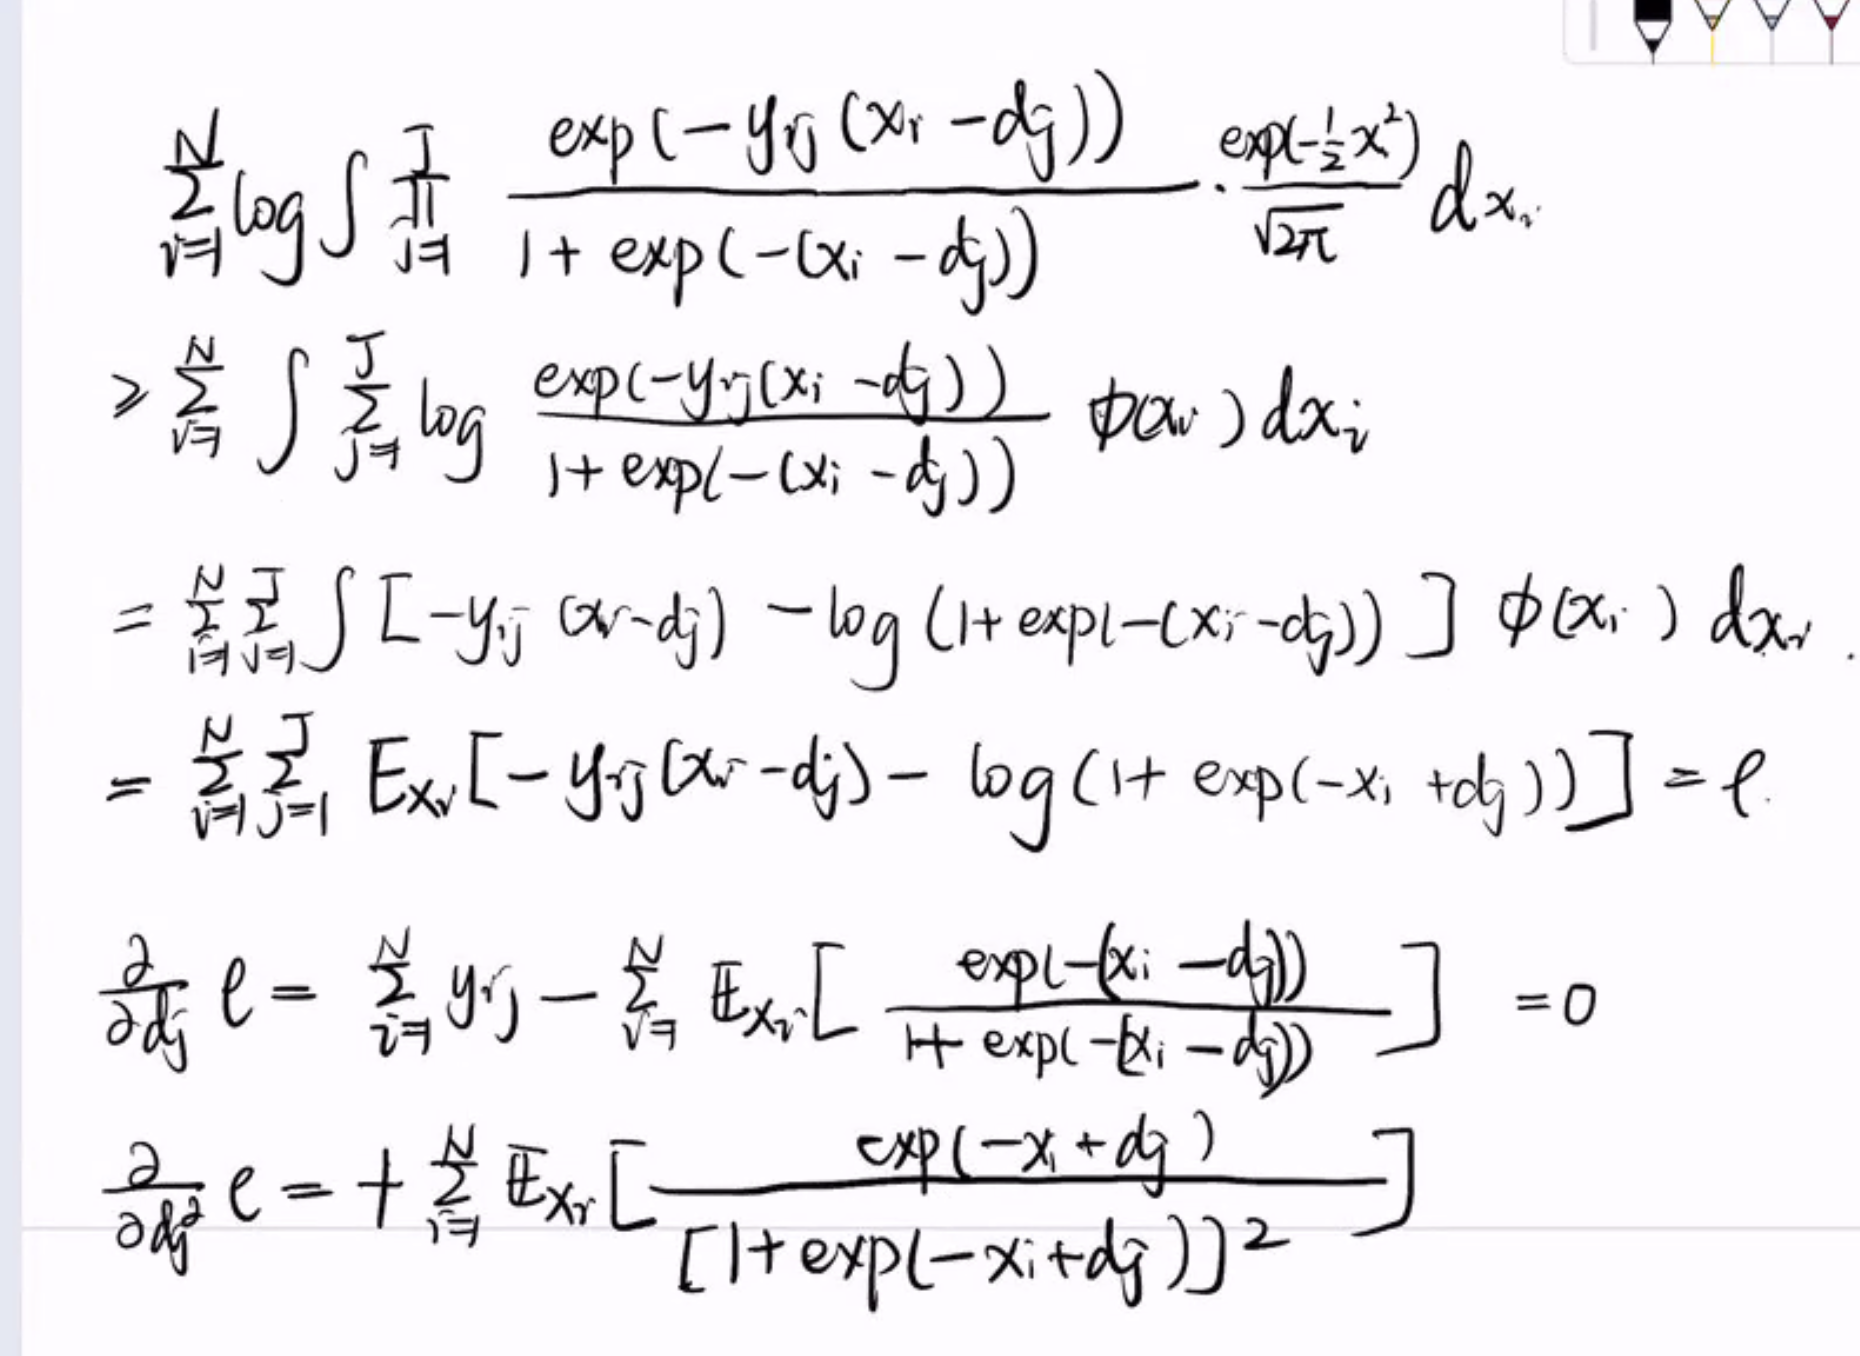 \sum_{i=1}^{N} \log \int \prod_{j=1}^{J} \frac{\exp(-y_{ij}(x_i - d_j))}{1 + \exp(-(x_i - d_j))} \cdot \frac{\exp(-\frac{1}{2}x^2)}{\sqrt{2\pi}} dx_i
\geq \sum_{i=1}^{N} \int \sum_{j=1}^{J} \log \frac{\exp(-y_{ij}(x_i - d_j))}{1 + \exp(-(x_i - d_j))} \phi(x_i) dx_i
= \sum_{i=1}^{N} \sum_{j=1}^{J} \int [-y_{ij}(x_i - d_j) - \log(1 + \exp(-(x_i - d_j))] \phi(x_i) dx_i .
= \sum_{i=1}^{N} \sum_{j=1}^{J} E_{x_i}[-y_{ij}(x_i - d_j) - \log(1 + \exp(-x_i + d_j))] = \ell.
\frac{\partial}{\partial d_j} \ell = \sum_{i=1}^{N} y_{ij} - \sum_{i=1}^{N} E_{x_i}[\frac{\exp(-(x_i - d_j))}{1 + \exp(-(x_i - d_j))}] = 0
\frac{\partial}{\partial d_j^2} \ell = + \sum_{i=1}^{N} E_{x_i}[\frac{\exp(-x_i + d_j)}{[1 + \exp(-x_i + d_j)]^2}]